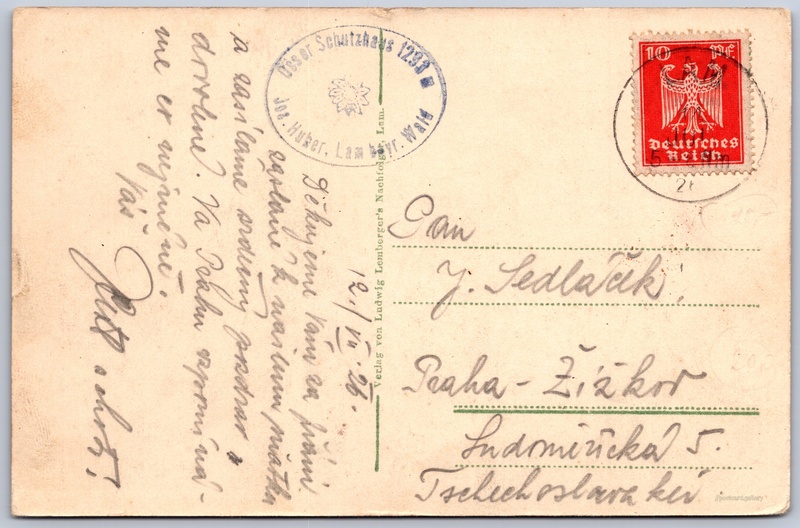 Osser Schutzhaus 1293 m
Jos. Huber, Lam bayr. Wald
10 Pf
Deutsches
Reich
Verlag von Ludwig Lemberger's Nachfolger, Lam.
12./VII. 26.
Děkujeme Vám za přání
zaslané k našemu svátku
a zasíláme srdečný pozdrav z
dovolené. Na Prahu vzpomíná-
me co nejméně.
Váš
a choť!
Pan
J. Sedláček,
Praha - Žižkov
Ludomiřická 5.
Tschechoslovakei